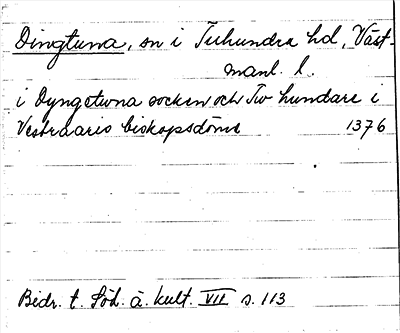 Dingtuna, sn i Tuhundra hd, Väst-
manl. l.
i Dyngetuna socken och Tw hundare i
Vestraaris biskopsdöme 1376
Bidr. t. Söd. ä. kult. VII s. 113